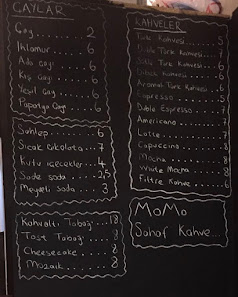 ÇAYLAR
Çay ...... 2
Ihlamur .... 6
Ada Çayı .... 6
Kış Çayı .... 6
Yeşil Çayı .... 6
Papatya Çayı .... 6
Sahlep ...... 6
Sıcak Çikolata ... 7
Kutu içecekler .. 4
Sade soda .... 2,5
Meyveli soda ..... 3
Kahvaltı Tabağı ... 18
Tost Tabağı .... 8
Cheesecake .... 8
Mozaik ...... 8
KAHVELER
Türk Kahvesi .... 5
Türk Kahvesi
Kahvesi .... 6
Aromalı Türk Kahvesi . 6
Espresso ..... 5
Duble Espresso .. 7
Americano ..... 7
Latte ...... 7
Capuccino ..... 8
Mocha ...... 8
White Mocha .... 8
Filtre Kahve .... 6
MoMo
Sahaf Kahve...